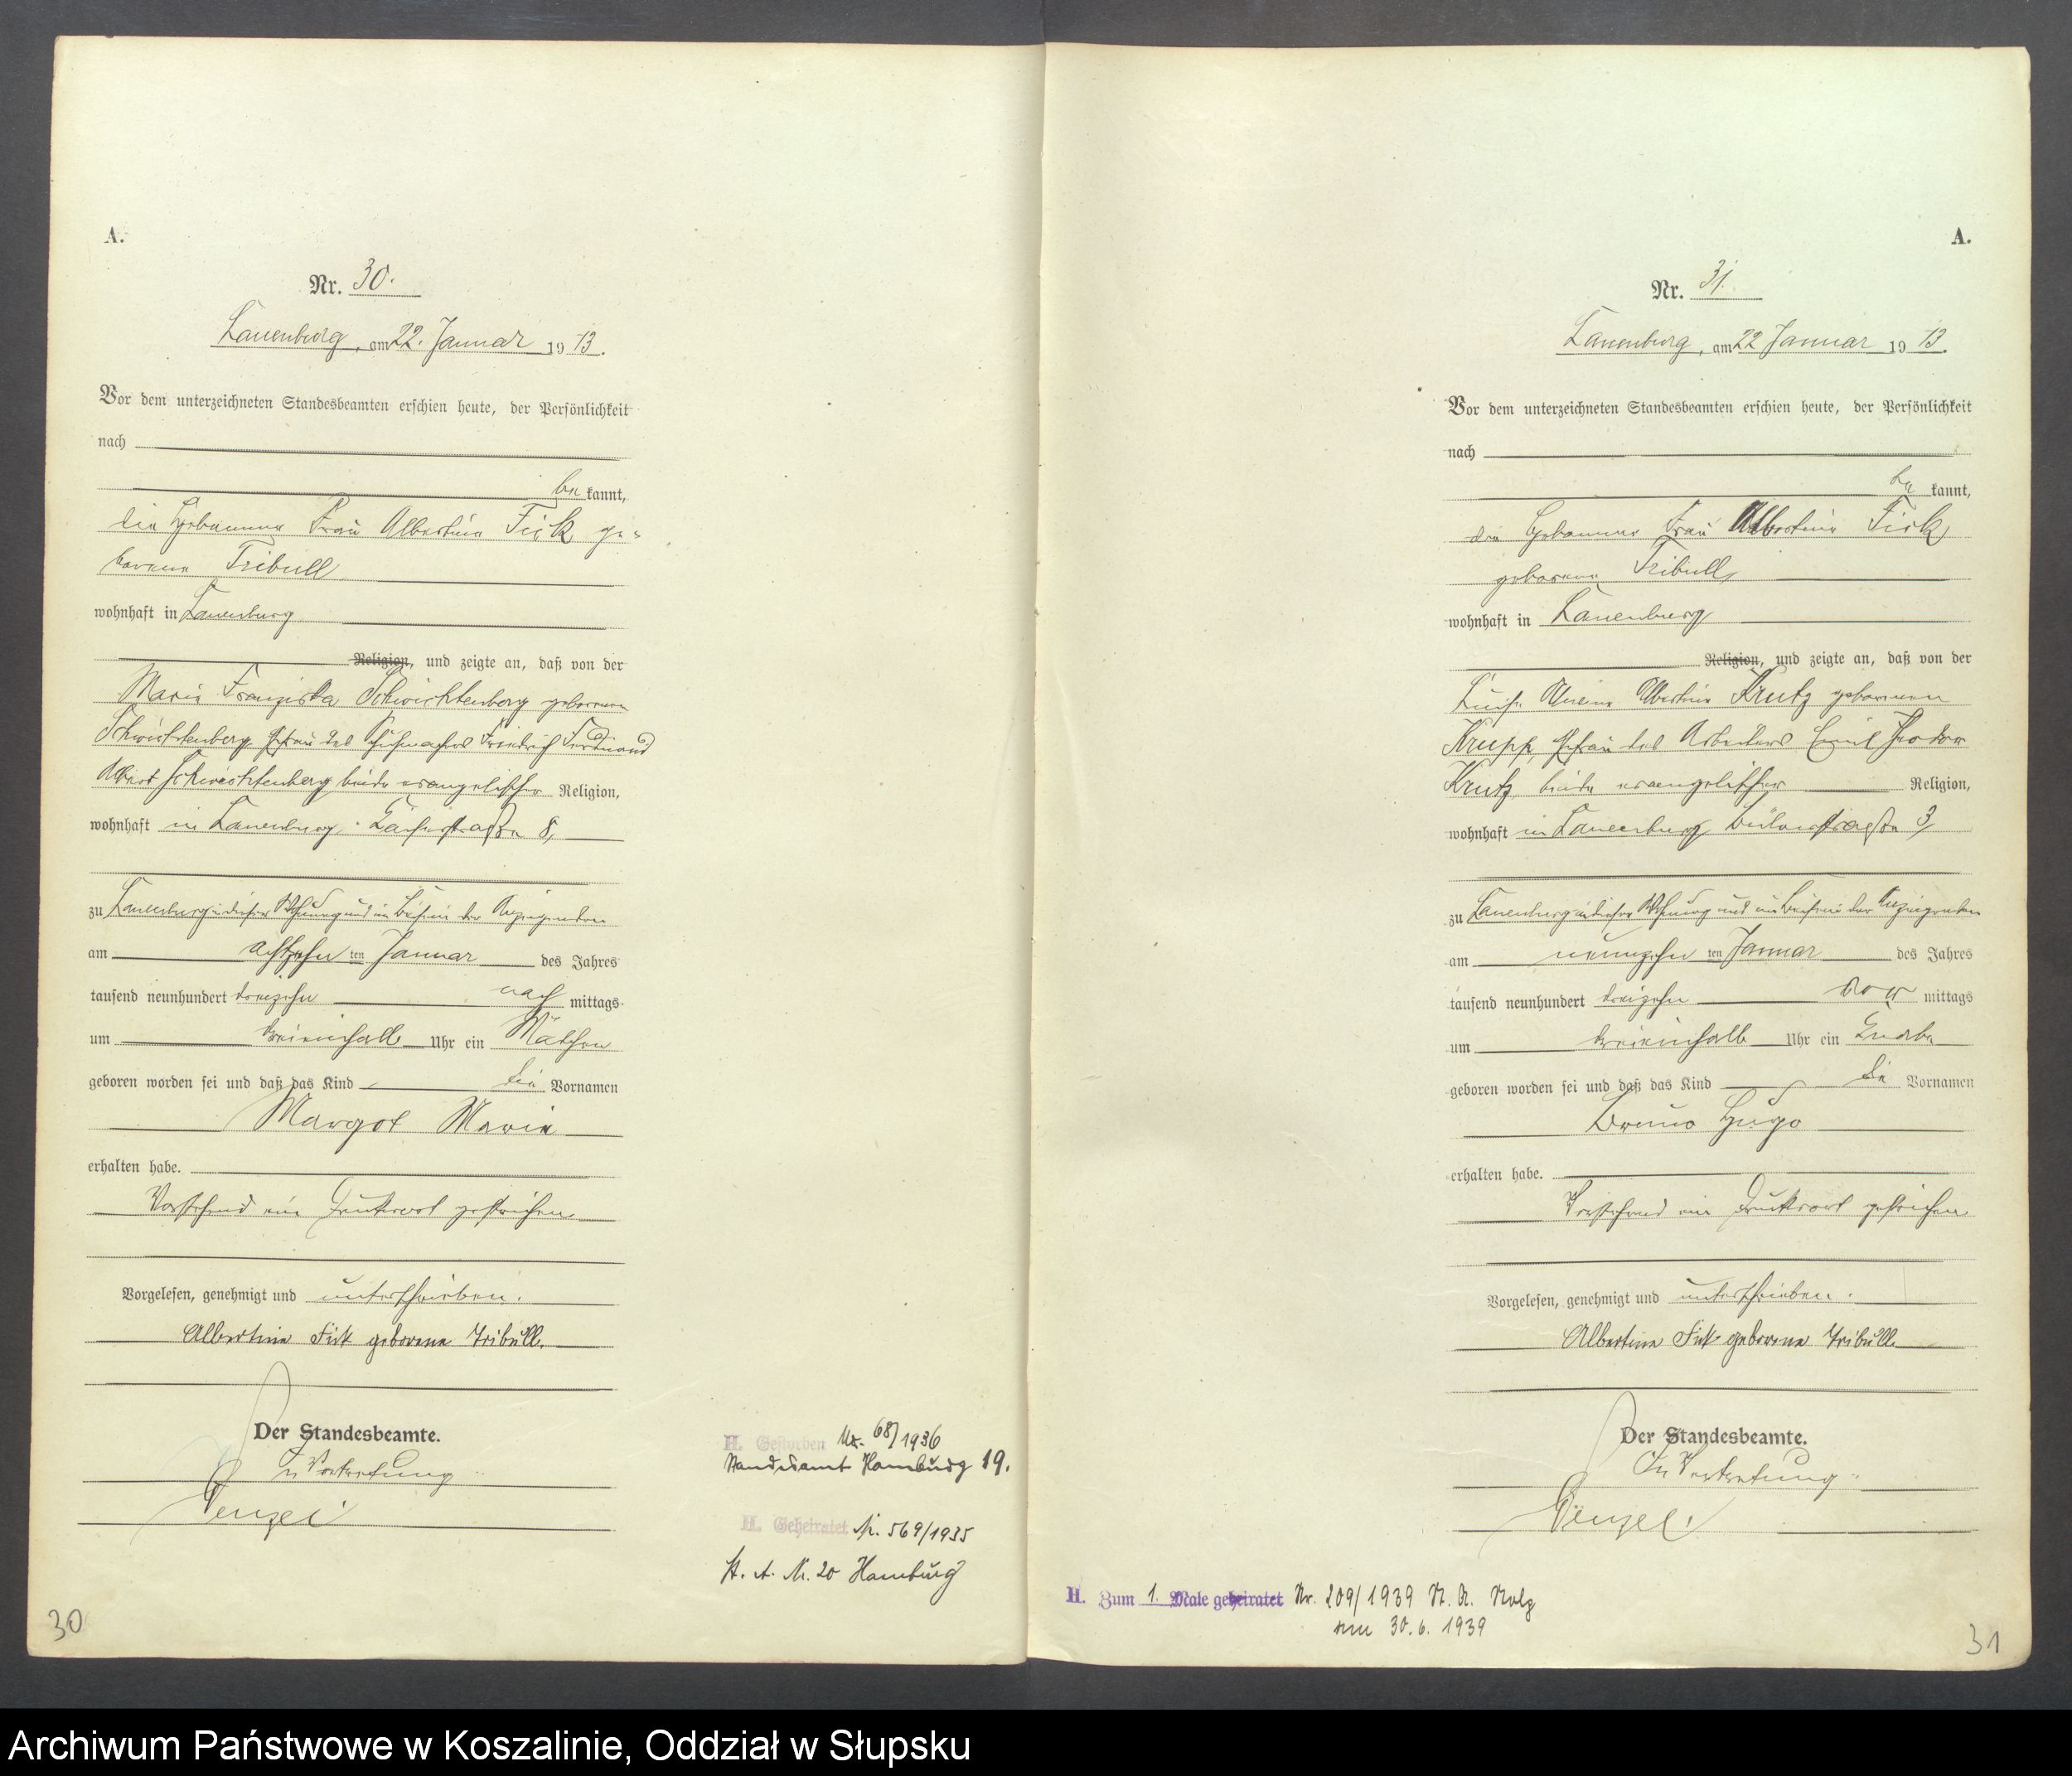 A.
Nr. 30.
Lauenburg, am 22. Januar 1913.
Vor dem unterzeichneten Standesbeamten erschien heute, der Persönlichkeit
nach
be kannt,
die Hebamme Frau Albertine Fick ge-
borene Tribull
wohnhaft in Lauenburg
Religion, und zeigte an, daß von der
Maria Franziska Schwichtenberg geborenen
Schwichtenberg, Ehefrau des Schuhmachers Friedrich Ferdinand
Albert Schwichtenberg beide evangelischer Religion,
wohnhaft in Lauenburg 8,
zu Lauenburg in dieser Wohnung und im Beisein der Anzeigenden
am achtzehn ten Januar des Jahres
tausend neunhundert dreizehn nach mittags
um dreieinhalb Uhr ein Mädchen
geboren worden sei und daß das Kind die Vornamen
Margot Maria
erhalten habe.
Vorstehend ein Druckwort gestrichen
Vorgelesen, genehmigt und unterschrieben.
Albertine Fick geborene Tribull.
Der Standesbeamte.
In Vertretung
H. Gestorben Nr. 68/1936
Standesamt Hamburg 19.
H. Geheiratet Nr. 569/1935
St. A. Nr. 20 Hamburg
30
A.
Nr. 31.
Lauenburg, am 22 Januar 1913.
Vor dem unterzeichneten Standesbeamten erschien heute, der Persönlichkeit
nach
be kannt,
die Hebamme Frau Albertine Fick
geborene Tribull
wohnhaft in Lauenburg
Religion, und zeigte an, daß von der
Albertine Krutz geborenen
Krupp, Ehefrau des Arbeiters Emil Theodor
Krutz, beide evangelischer Religion,
wohnhaft in Lauenburg Bülowstraße 3,
zu Lauenburg in dieser Wohnung und im Beisein der Anzeigenden
am neunzehn ten Januar des Jahres
tausend neunhundert dreizehn vor mittags
um dreieinhalb Uhr ein Knabe
geboren worden sei und daß das Kind die Vornamen
Bruno Hugo
erhalten habe.
Vorstehend ein Druckwort gestrichen
Vorgelesen, genehmigt und unterschrieben.
Albertine Fick geborene Tribull.
Der Standesbeamte.
In Vertretung
H. Zum 1. Male geheiratet Nr. 209/1939 St. A. Stolp
am 30.6.1939
31
Archiwum Państwowe w Koszalinie, Oddział w Słupsku